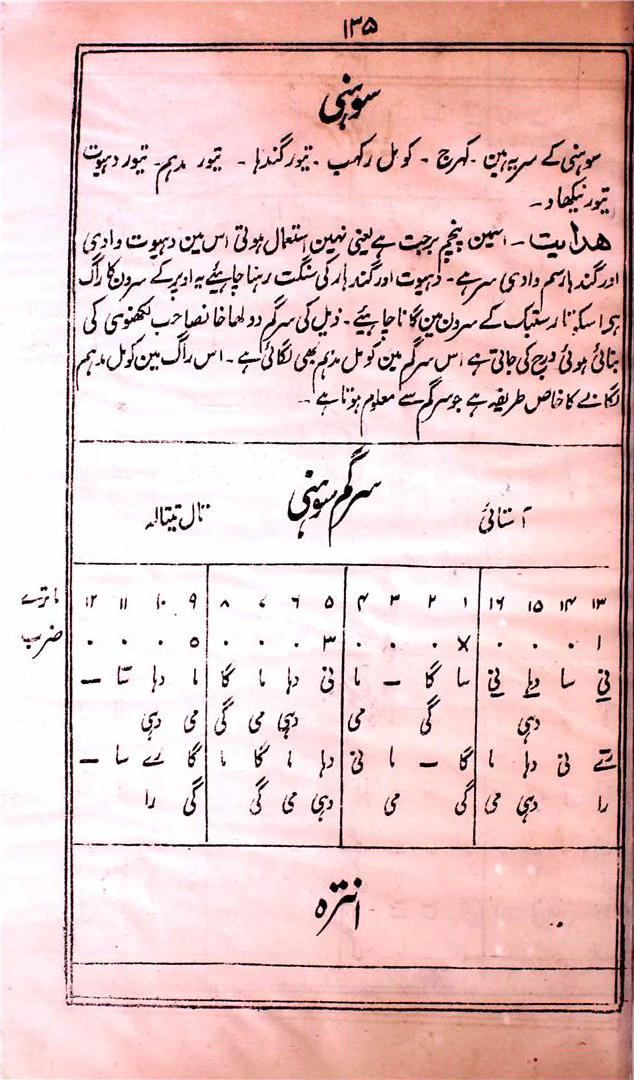 ۱۳۵
سوہنی
سوہنی کے سر یہ ہین ۔ کہرج ۔ کومل رکہب ۔ تیور گندہار ۔ تیور مدہم ۔ تیور دہیوت
تیور نیکھاد ۔
ھدایت ۔ اسمین پنچم برجت ہے یعنی نہین استعمال ہوتی اس مین دہیوت وادی
اور گندہار سم وادی سر ہے ۔ دہیوت اور گندہار کی سنگت رہنا چاہئیے یہ اوپر کے سرون کا راگ
ہے اسکو تار سپتک کے سرون مین گانا چاہئیے ۔ ذیل کی سرگم دولھا خانصاحب لکھنوی کی
بنائی ہوئی درج کی جاتی ہے اس سرگم مین کومل مدہم بھی لگائی ہے ۔ اس راگ مین کومل مدہم
لگانے کا خاص طریقہ ہے جو سرگم سے معلوم ہوتا ہے ۔
سرگم سوہنی
آستائی تال تیتالہ
۱۳ ۱۴ ۱۵ ۱۶ ۱ ۲ ۳ ۴ ۵ ۶ ۷ ۸ ۹ ۱۰ ۱۱ ۱۲ ماترے
۱ ۰ ۰ ۰ × ۰ ۰ ۰ ۳ ۰ ۰ ۰ ۵ ۰ ۰ ۰ ضرب
نی سا دہا نی سا گا – ما نی دہا ما گا ما دہا سا –
دہی گی می دہی می گی می دہی
رے نی دہا ما گا – ما نی دہا ما گا ما گا رے سا –
را دہی می گی می دہی می گی گی را
انترہ